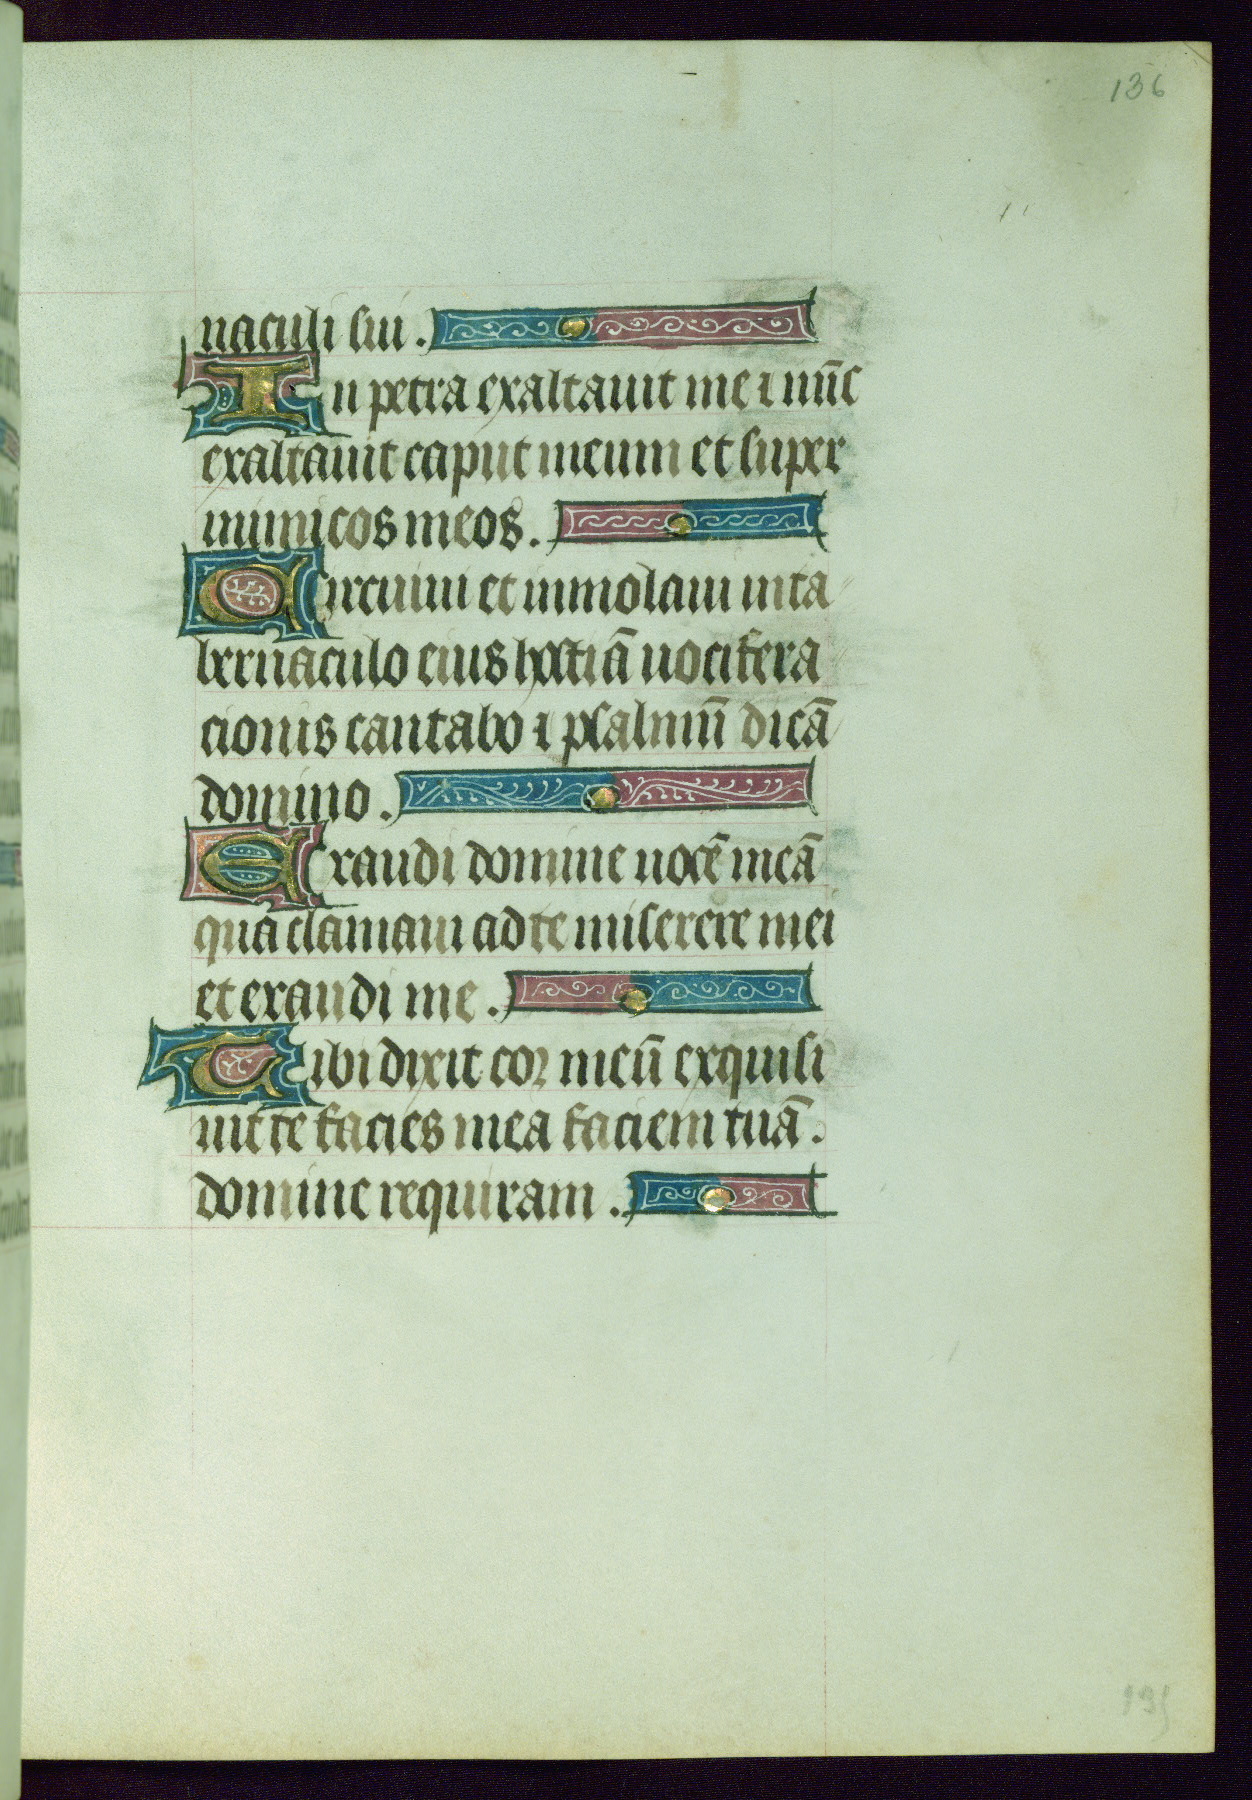 136
naculi sui.
In petra exaltauit me ⁊ nūc
exaltauit caput meum et super
inimicos meos.
Circuiui et immolaui in ta
bernaculo eius hostiā uocifera
cionis cantabo ⁊ psalmū dicā
domino.
Exaudi domine uocē meā
qua clamaui ad te miserere mei
et exaudi me.
Tibi dixit cor meū exquisi
uit te facies mea faciem tuā.
domine requiram.
135